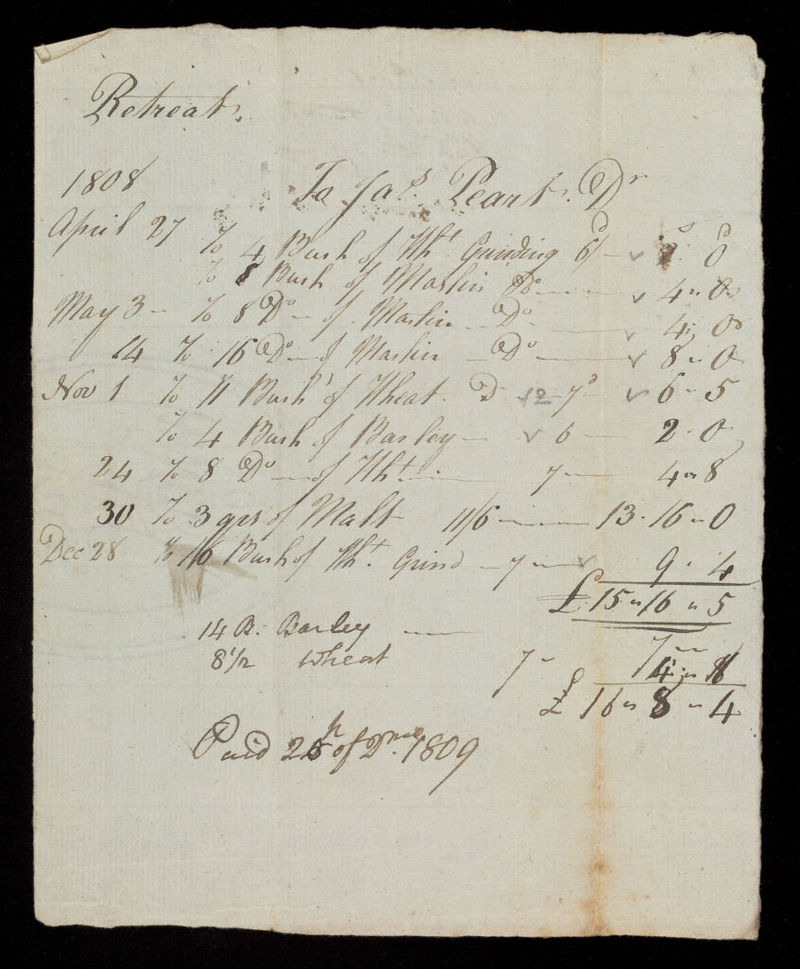 Retreat
1808 To Jas. Peart. Dr
April 27 To 4 Bush of Wht. Grinding 6d — 2s. 0d
To 8 Bush of Maslin Do — 4 " 0
May 3 — To 8 Do — of Maslin — Do — 4 " 0
14 To 16 Do — of Maslin — Do — 8 " 0
Nov 1 To 11 Bush of Wheat. D 7d — 6 " 5
To 4 Bush of Barley — 6 — 2 " 0
24 To 8 Do — of Wht — 7 — 4 " 8
30 To 3 qrs of Malt 11/6 — 13 " 16 " 0
Dec 28 To 16 Bush of Wht. Grind — 7 — 9 " 4
£15 " 16 " 5
14 B. Barley — 7 "
8 1/2 Wheat 7 — 4 " 
£ 16 " 8 " 4
Paid 25 of 1809